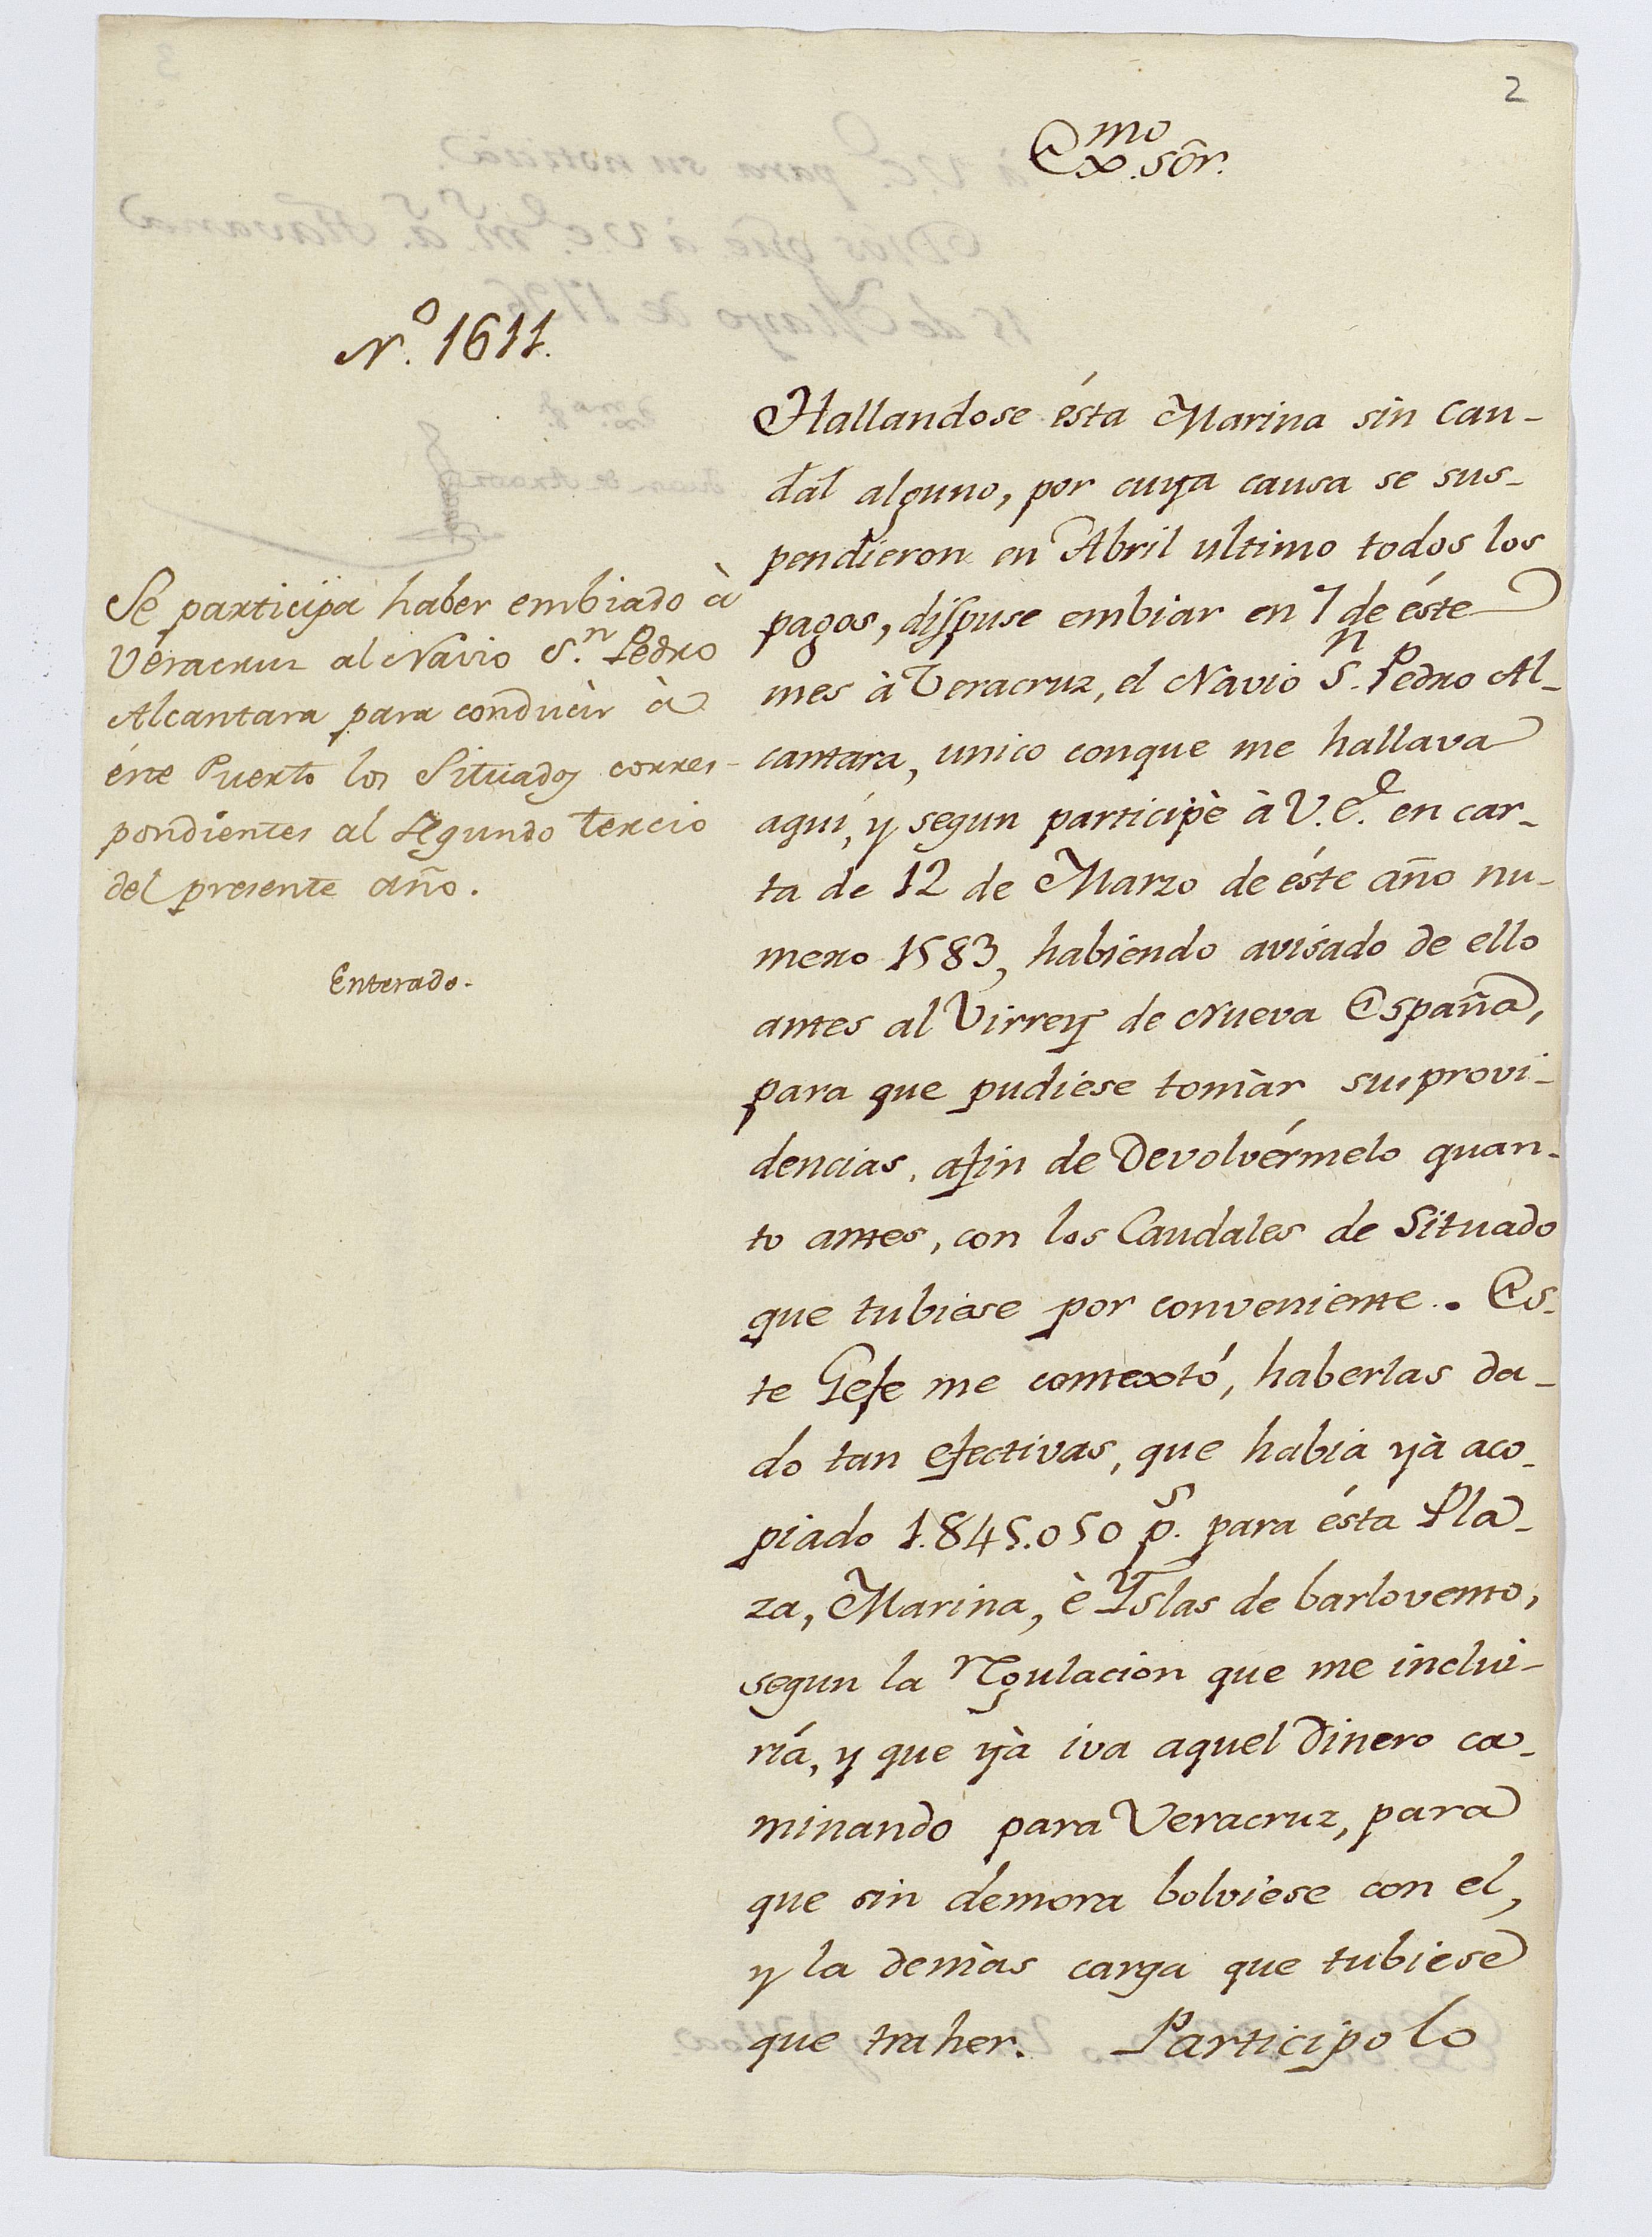 2
Exmo. Sôr.
No. 1611.
Se participa haber embiado à
Veracruz al Navio Sn. Pedro
Alcantara para conducir à
éste Puerto los Situados corres-
pondientes al segundo tercio
del presente año.
Enterado.
Hallandose ésta Marina sin cau-
dal alguno, por cuya causa se sus-
pendieron en Abril ultimo todos los
pagos, dispuse embiar en 7 de éste
mes à Veracruz, el Navio Sn. Pedro Al-
cantara, unico conque me hallava
aqui, y segun participè à V.E. en car-
ta de 12 de Marzo de éste año nu-
mero 1583, habiendo avisado de ello
antes al Virrey de Nueva España,
para que pudiese tomàr sus provi-
dencias, afin de Devolvérmelo quan-
to antes, con los Caudales de Situado
que tubiese por conveniente. Es-
te Gefe me contextó, haberlas da-
do tan efectivas, que habia yà aco-
piado 1.845.050 ps. para ésta Pla-
za, Marina, è Yslas de barlovento,
segun la regulacion que me inclui-
ría, y que yà iva aquel dinero ca-
minando para Veracruz, para
que sin demora bolviese con el,
y la demàs carga que tubiese
que traher. Participolo